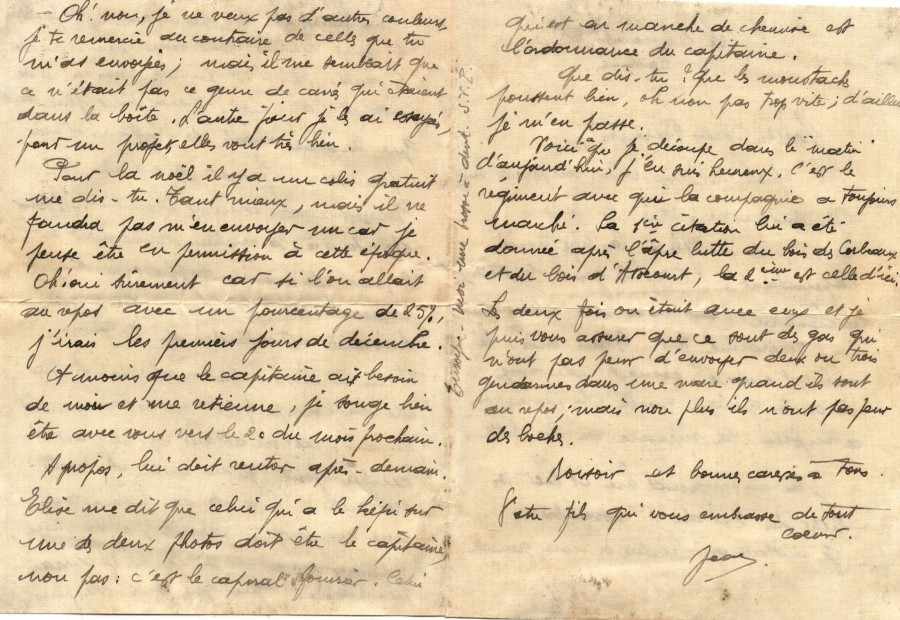 — Oh! non, je ne veux pas d'autres couleurs,
je te remercie au contraire de celles que tu
m'as envoyées ; mais il me semblait que
ce n'était pas ce genre de carrés qui étaient
dans la boîte. L'autre jour je les ai essayés,
pour un projet elles vont très bien.
Pour la noël il y a un colis gratuit
me dis-tu. Tant mieux, mais il ne
faudra pas m'en envoyer un car je
pense être en permission à cette époque.
Oh! oui sûrement car si l'on allait
au repos avec un pourcentage de 25%,
j'irais les premiers jours de décembre.
A moins que le capitaine ait besoin
de moi et me retienne, je songe bien
être avec vous vers le 20 du mois prochain.
A propos, lui doit rentrer après-demain.
Elise me dit que celui qui a le képi sur
une des deux photos doit être le capitaine,
non pas : c'est le caporal fourrier. Celui
Envoyer-moi une brosse à dent. S.V.P.
qui est en manche de chemise est
l'ordonnance du capitaine.
Que dis-tu ? Que les moustach
poussent bien, oh non pas trop vite ; d'ailleu
je m'en passe.
Voici que je découpe dans le "matin"
d'aujourd'hui, j'en suis heureux. C'est le
régiment avec qui la compagnie a toujours
marché. La 1ère citation lui a été
donnée après l'âpre lutte du bois des Corbeaux
et du bois d'Avocourt, la 2ème est celle d'ici.
Les deux fois on était avec eux et je
puis vous assurer que ce sont des gas qui
n'ont pas peur d'envoyer deux ou trois
gendarmes dans une mare quand ils sont
au repos, mais non plus ils n'ont pas peur
des boches.
Bonsoir et bonnes caresses à tous.
Votre fils qui vous embrasse de tout
coeur.
Jean